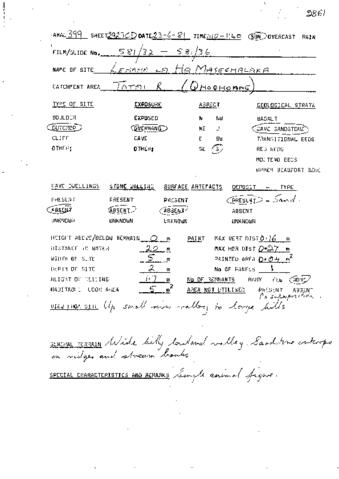 2861
ARAL 399 SHEET 2927CD DATE 23-6-81 TIME SUN OVERCAST RAIN
FILM/SLIDE No. 581/32 - 581/36
NAME OF SITE LEHAHA LA HA MASEEMALAKA
CATCHMENT AREA TATAI R. (QHOQHOANE)
TYPE OF SITE EXPOSURE ASPECT GEOLOGICAL STRATA
BOULDER EXPOSED N NW BASALT
OUTCROP OVERHANG NE CAVE SANDSTONE
CLIFF CAVE E SW TRANSITIONAL BEDS
OTHER: OTHER: SE S RED BEDS
MOLTENO BEDS
UPPER BEAUFORT BEDS
CAVE DWELLINGS STONE WALLING SURFACE ARTEFACTS DEPOSIT - TYPE
PRESENT PRESENT PRESENT PRESENT - Sand.
ABSENT ABSENT ABSENT ABSENT
UNKNOWN UNKNOWN UNKNOWN UNKNOWN
HEIGHT ABOVE/BELOW REMHAIN 0 m PAINT MAX VERT DIST 0·16 m
DISTANCE TO WATER 20 m MAX HOR DIST 0·27 m
WIDTH OF SITE 5 m PAINTED AREA 0·04 m²
DEPTH OF SITE 2 m No OF PANELS 1
HEIGHT OF CEILING 1·7 m No OF REMNANTS MANY FEW NONE
HABITABLE FLOOR AREA 5 m² AREA NOT UTILISED PRESENT ABSENT
No superposition.
VIEW FROM SITE Up small river valley to large hills
GENERAL TERRAIN Wide hilly lowland valley. Sandstone outcrops
on ridges and stream banks
SPECIAL CHARACTERISTICS AND REMARKS Single animal figure.